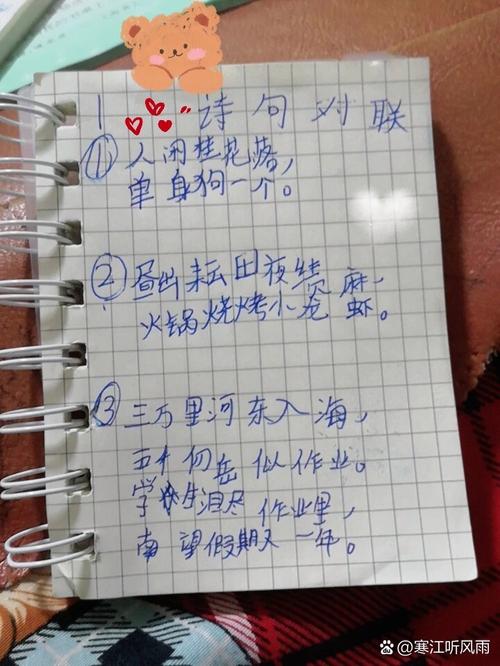 诗句对联
① 人闲桂花落，
单身狗一个。
② 昼出耘田夜绩麻
火锅烧烤小龙虾。
③ 三万里河东入海，
五千仞岳似作业。
学生泪尽作业里，
南望假期又一年。
@寒江听风雨